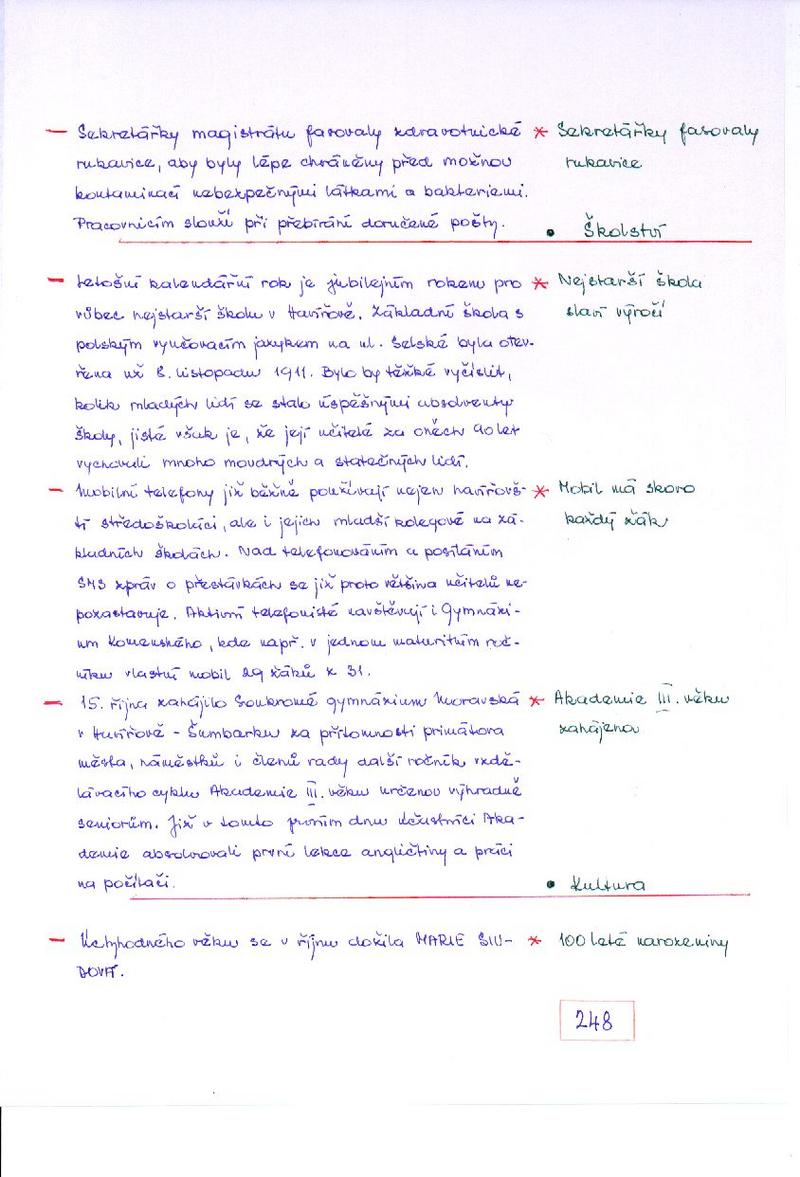 – Sekretářky magistrátu fasovaly zdravotnické * Sekretářky fasovaly
rukavice, aby byly lépe chráněny před možnou rukavice
kontaminací nebezpečnými látkami a bakteriemi.
Pracovnicím slouží při přebírání doručené pošty. • Školství
– Letošní kalendářní rok je jubilejním rokem pro * Nejstarší škola
vůbec nejstarší školu v Havířově. Základní škola s slaví výročí
polským vyučovacím jazykem na ul. Selské byla otev-
řena už 8. listopadu 1911. Bylo by těžké vyčíslit,
kolik mladých lidí se stalo úspěšnými absolventy
školy, jisté však je, že její učitelé za oněch 90 let
vychovali mnoho moudrých a statečných lidí.
– Mobilní telefony již běžně používají nejen havířovš- * Mobil má skoro
tí středoškoláci, ale i jejich mladší kolegové na zá- každý žák
kladních školách. Nad telefonováním a posíláním
SMS zpráv o přestávkách se již proto většina učitelů ne-
pozastavuje. Aktivní telefonisté navštěvují i Gymnázi-
um Komenského, kde např. v jednom maturitním roč-
níku vlastní mobil 29 žáků z 31.
– 15. října zahájilo Soukromé gymnázium Moravská * Akademie III. věku
v Havířově - Šumbarku za přítomnosti primátora zahájena
města, náměstků i členů rady další ročník vzdě-
lávacího cyklu Akademie III. věku určenou výhradně
seniorům. Již v tomto prvním dnu účastníci Aka-
demie absolvovali první lekce angličtiny a práci
na počítači. • Kultura
– Úctyhodného věku se v říjnu dožila MARIE SIU- * 100 leté narozeniny
DOVÁ.
248